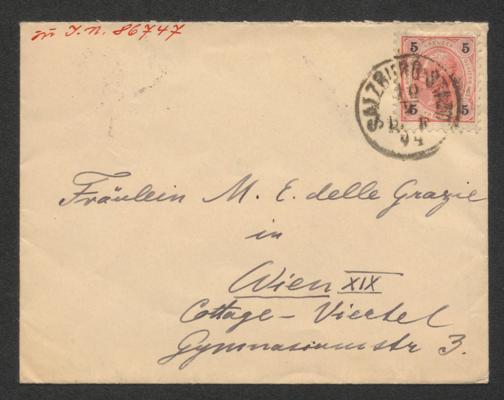 zu I. N. 86747
5 5
SALZBURG-STADT
94
5 5
Fräulein M. E. delle Grazie
in
Wien XIX
Cottage-Viertel
Gymnasiumstr 3.